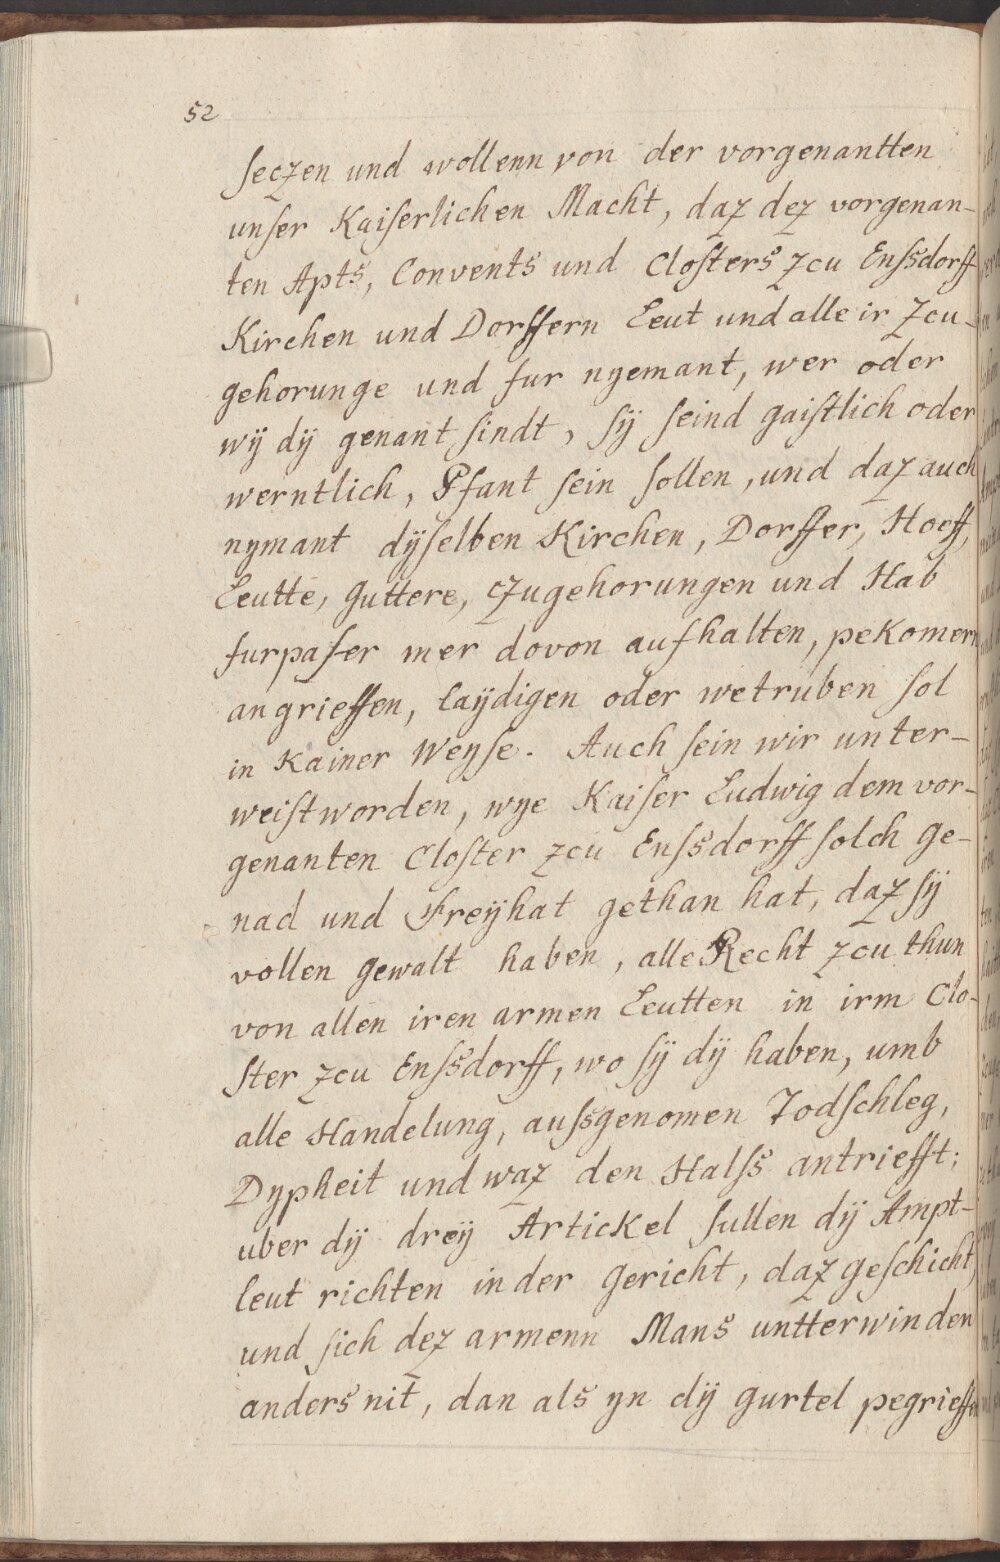 52
seczen und wollenn von der vorgenantten
unser Kaiserlichen Macht, daz dez vorgenan-
ten Apts, Convents und Closters zcu Enssdorff
Kirchen und Dorffern Leut und alle ir Zcu-
gehorunge und fur nyemant, wer oder
wÿ dÿ genant sindt, sÿ seind gaistlich oder
werntlich, Pfant sein sollen, und daz auch
nymant dÿselben Kirchen, Dorffer, Hoeff,
Leutte, Guttere, Czugehorungen und Hab
furpaser mer dovon aufhalten, pekomern
angrieffen, laÿdigen oder wetruben sol
in Kainer Weyse. Auch sein wir unter-
weist worden, wye Kaiser Ludwig dem vor-
genanten Closter zcu Enssdorff solch ge-
nad und Freÿhat gethan hat, daz sÿ
vollen gewalt haben, alle Recht zcu thun
von allen iren armen Leutten in irm Clo-
ster zcu Enssdorff, wo sÿ dÿ haben, umb
alle Handelung, aussgenomen Todschleg,
Dypheit und waz den Halss antriefft;
uber dÿ dreÿ Artickel sullen dÿ Ampt-
leut richten in der Gericht, daz geschicht,
und sich dez armenn Mans untterwinden
anders nit, dan als yn dÿ gurtel pegrieffen